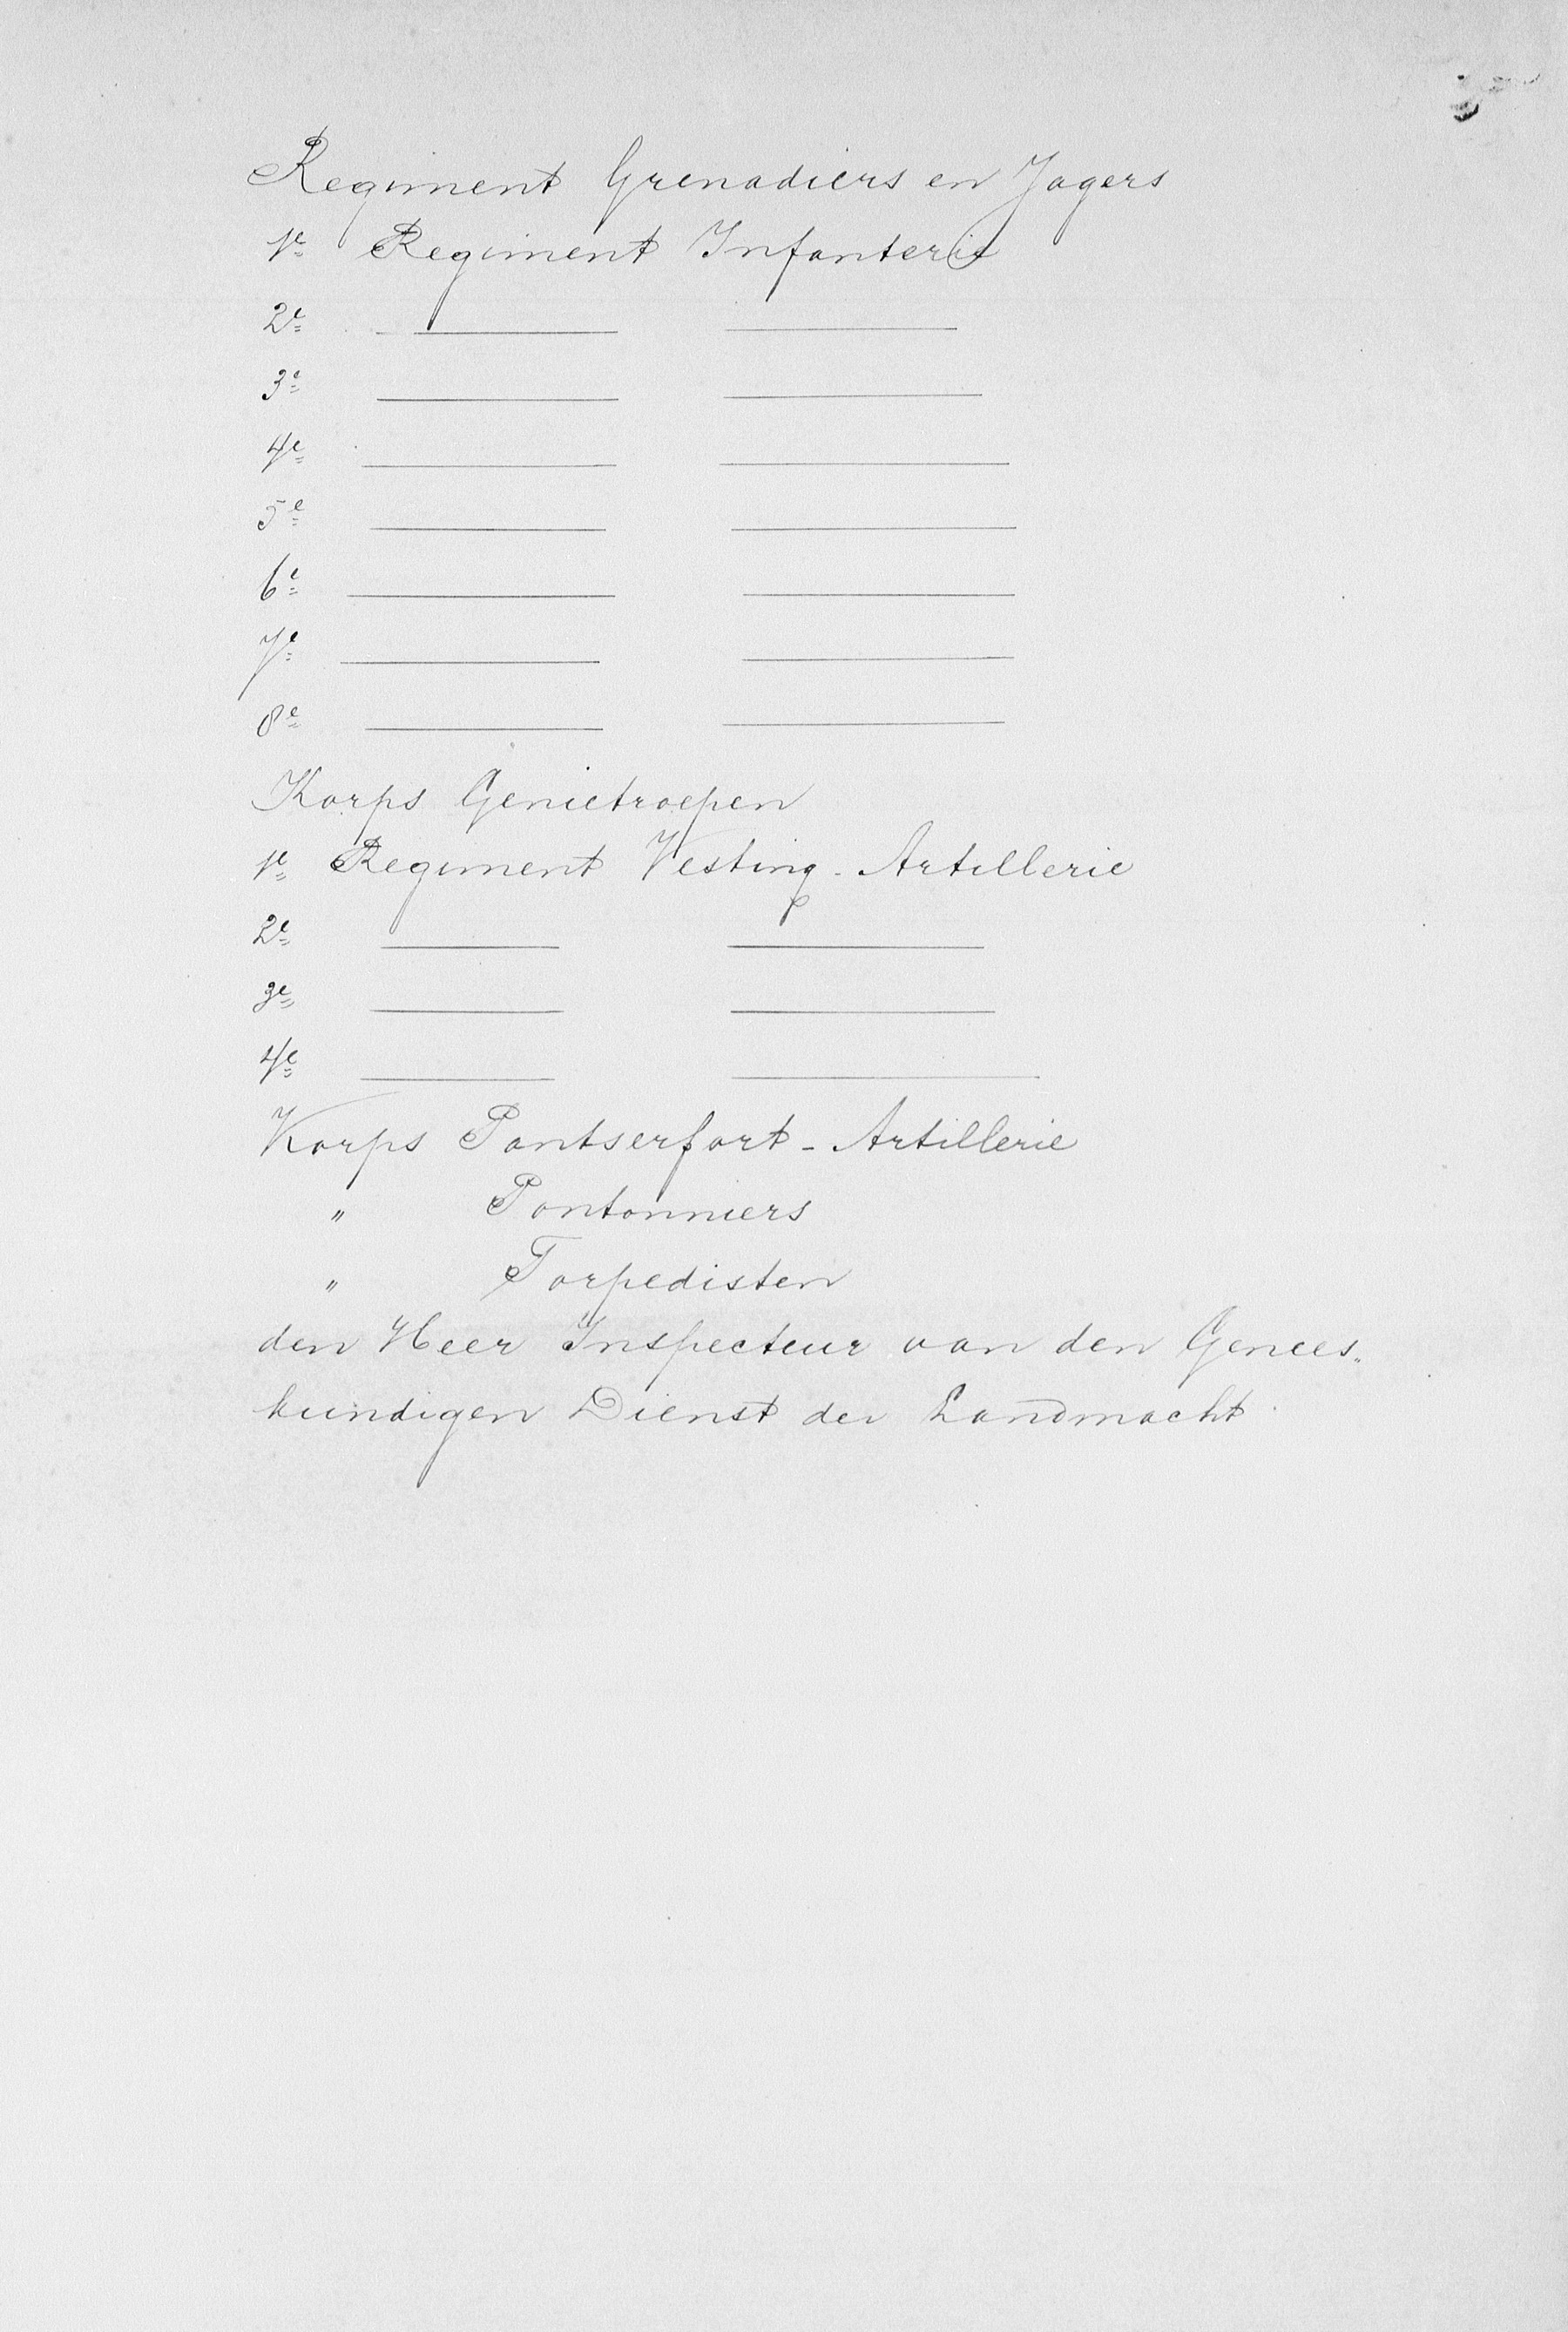 Regiment Grenadiers en Jagers
1e Regiment Infanterie
2e ——— ———
3e ——— ———
4e ——— ———
5e ——— ———
6e ——— ———
7e ——— ———
8e ——— ———
Korps Genietroepen
1e Regiment Vesting-Artillerie
2e ——— ———
3e ——— ———
4e ——— ———
Korps Pantserfort-Artillerie
" Pontonniers
" Torpedisten
den Heer Inspecteur van den Genees„
kundigen Dienst der Landmacht